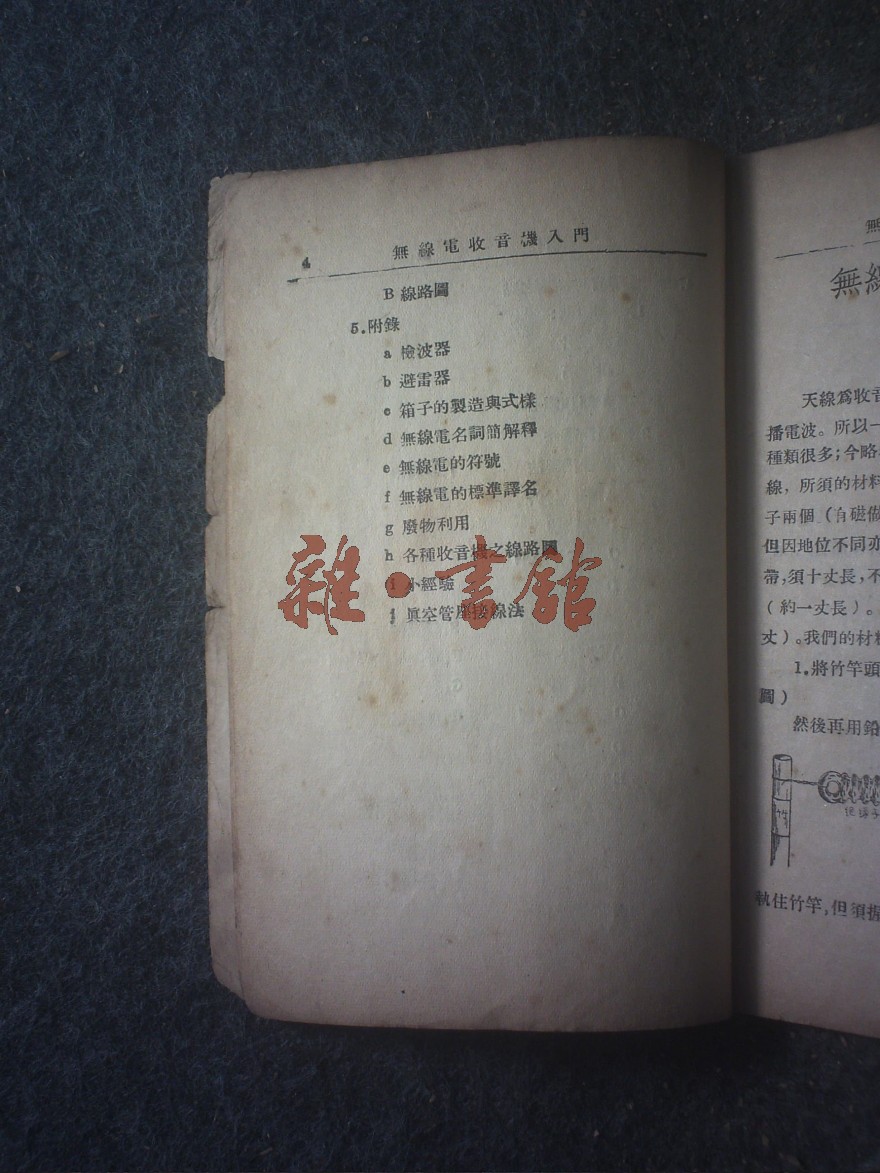 4 無線電收音機入門
B 線路圖
5.附錄
a 檢波器
b 避雷器
c 箱子的製造與式樣
d 無線電名詞簡解釋
e 無線電的符號
f 無線電的標準譯名
g 廢物利用
h 各種收音機之線路圖
i 小經驗
j 眞空管座接線法
雜·書館
無
無線
天線爲收音
播電波。所以一
種類很多;今略
線，所須的材料
子兩個(有磁做
但因地位不同亦
帶,須十丈長,不
(約一丈長)。
丈)。我們的材料
1.將竹竿頭
圖)
然後再用鉛
竹
執住竹竿,但須握